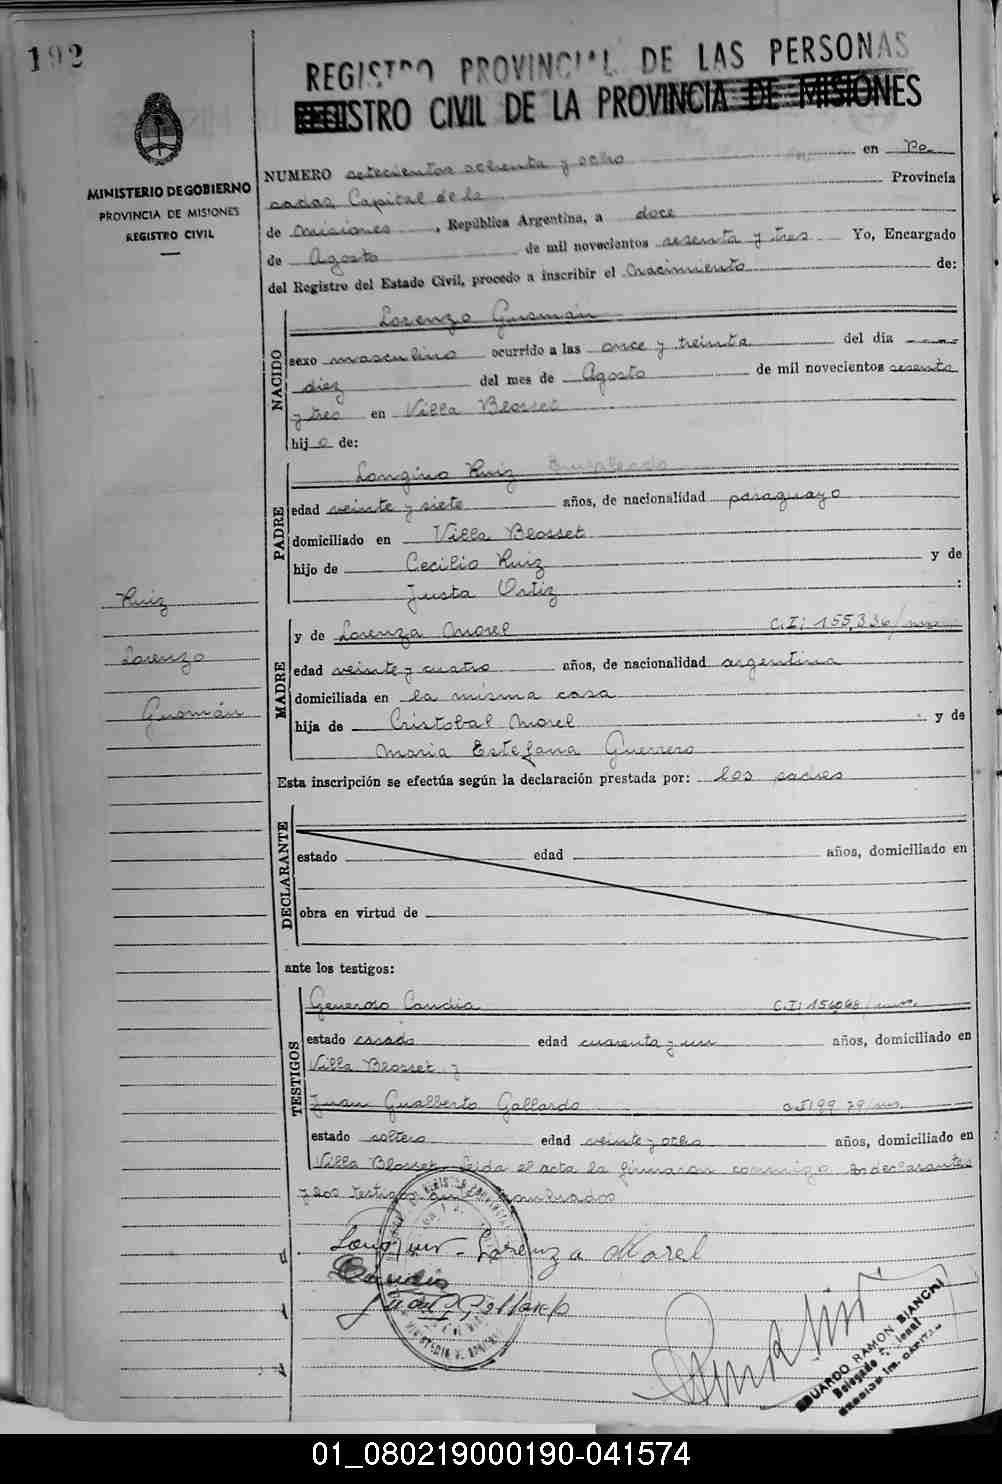 192
REGISTRO PROVINCIAL DE LAS PERSONAS
REGISTRO CIVIL DE LA PROVINCIA DE MISIONES
MINISTERIO DE GOBIERNO
PROVINCIA DE MISIONES
REGISTRO CIVIL
NUMERO setecientos ochenta y ocho en Po
sadas, Capital de la Provincia
de Misiones, República Argentina, a doce
de Agosto de mil novecientos sesenta y tres Yo, Encargado
del Registro del Estado Civil, procedo a inscribir el Nacimiento de:
NACIDO
Lorenzo Gusmán
sexo masculino ocurrido a las once y treinta del día
diez del mes de Agosto de mil novecientos sesenta
y tres en Villa Blosset
hijo de:
PADRE
Longino Ruiz Empleado
edad veinte y siete años, de nacionalidad paraguayo
domiciliado en Villa Blosset
hijo de Cecilio Ruiz y de
Justa Ortiz :
Ruiz
Lorenzo
Gusmán
MADRE
y de Lorenza Morel C.I: 155.336/
edad veinte y cuatro años, de nacionalidad argentina
domiciliada en la misma casa
hija de Cristobal Morel y de
Maria Estefana Guerrero
Esta inscripción se efectúa según la declaración prestada por: los padres
DECLARANTE
estado edad años, domiciliado en
obra en virtud de
ante los testigos:
TESTIGOS
Generoso Candia C.I:
estado casado edad cuarenta y un años, domiciliado en
Villa Blosset y
Juan Gualberto Gallardo
estado soltero edad veinte y ocho años, domiciliado en
Villa Blosset. Leida el acta la firmaron conmigo los declarantes
y los testigos nombrados
Lorenza Morel
Candia
EDUARDO RAMON BIANCHI
Delegado
CAPITAL
01_080219000190-041574